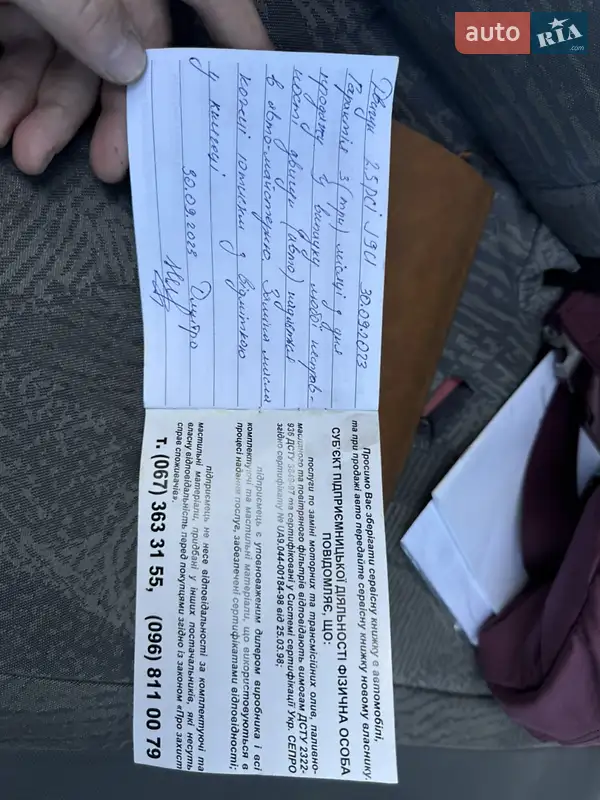 auto RIA .com
Двигун 2.5 dCi J9U 30.09.2023
Гарантія 3 (три) місяці з дня
продажу. У випуску любої несправ-
ності двигун (Авто)
в авто-майстерню. Заміна масла
кожні з відміткою
у книжці
30.09.2023 Дмитро
Просимо Вас зберігати сервісну книжку в автомобілі,
та при продажі авто передайте сервісну книжку новому власнику.
СУБ'ЄКТ ПІДПРИЄМНИЦЬКОЇ ДІЯЛЬНОСТІ ФІЗИЧНА ОСОБА
ПОВІДОМЛЯЄ, ЩО:
послуги по заміні моторних та трансмісійних олив, паливно-
масляного та повітряного фільтрів відповідають вимогам ДСТУ 2322-
93б ДСТУ 3849-97 та сертифіковані у Системі сертифікації Укр. СЕПРО
згідно сертифікату № UA9.044-00184-98 від 25.03.98;
підприємець є уповноваженим дилером виробника і всі
комплектуючі та мастильні матеріали, що використовуються в
процесі надання послуг, забезпечені сертифікатами відповідності;
підприємець не несе відповідальності за комплектуючі та
мастильні матеріали, придбані у інших постачальників, які несуть
власну відповідальність перед покупцями згідно із законом «Про захист
справ споживачів».
т. (067) 363 31 55, (096) 811 00 79